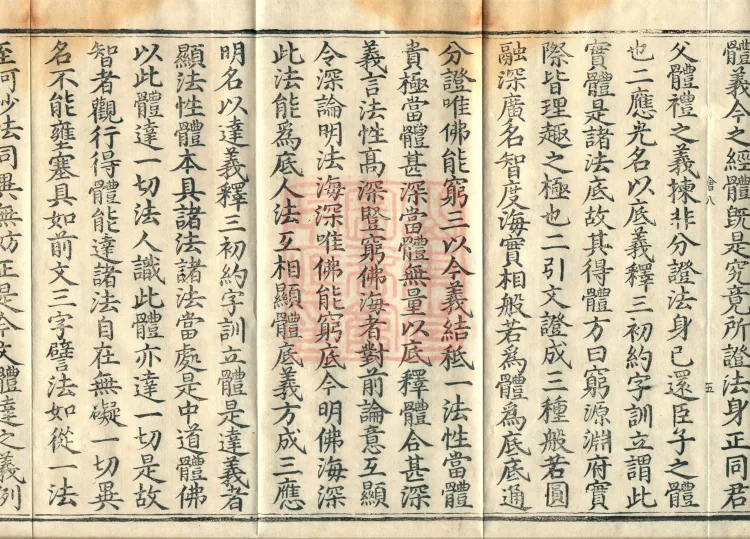 體義今之經體旣是究竟所證法身正同君
父體禮之義揀非分證法身已還臣子之體
也二應光名以底義釋三初約字訓立謂此
實體是諸法底故其得體方曰窮源淵府實
際皆理趣之極也二引文證成三種般若圓
融深廣名智度海實相般若爲體爲底底通
會八
五
分證唯佛能窮三以今義結秪一法性當體
貴極當體甚深當體無量以底釋體合甚深
義言法性高深豎窮佛海者對前論意互顯
令深論明法海深唯佛能窮底今明佛海深
此法能爲底人法互相顯體底義方成三應
明名以達義釋三初約字訓立體是達義者
顯法性體本具諸法諸法當處是中道體佛
以此體達一切法人識此體亦達一切是故
智者觀行得體能達諸法自在無礙一切異
名不能壅塞具如前文三字譬法如從一法
至河妙法同異無妨正是今文體達之義例